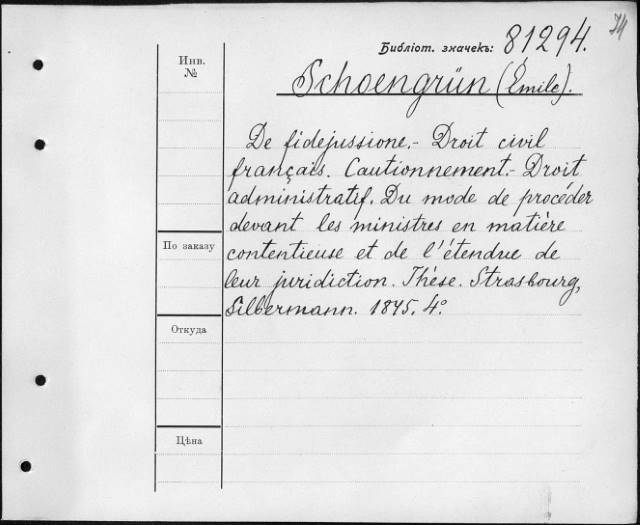 Библіот. значекъ: 81294.
Инв.
№
Schoengrün (Émile).
De fidejussione.- Droit civil
français. Cautionnement.- Droit
administratif. Du mode de procéder
devant les ministres en matière
contentieuse et de l'étendue de
leur juridiction. Thèse. Strasbourg,
Silbermann. 1845. 4°
По заказу
Откуда
Цѣна